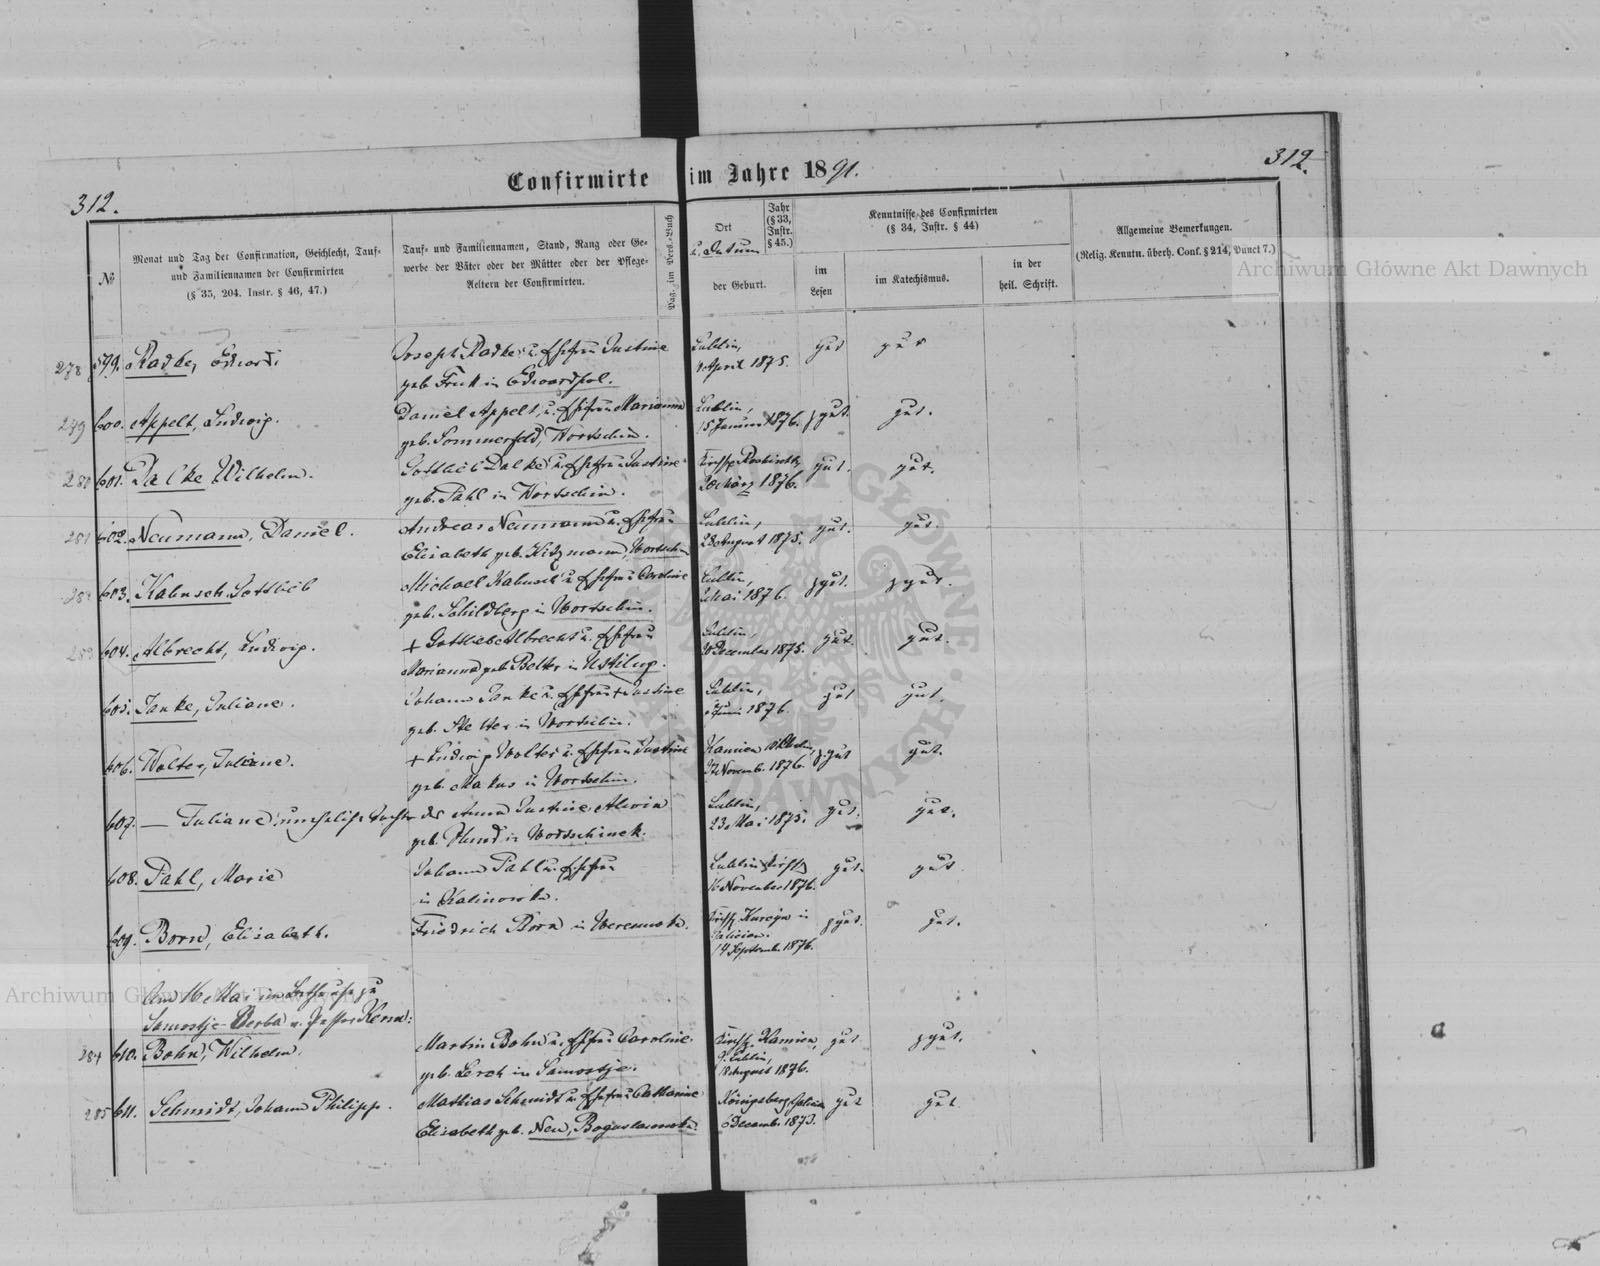 312.
Confirmirte im Jahre 1891.
312.
No
Monat und Tag der Confirmation, Geschlecht, Tauf-
und Familiennamen der Confirmirten
(§ 35, 204. Instr. § 46, 47.)
Tauf- und Familiennamen, Stand, Rang oder Ge-
werbe der Väter oder der Mütter oder der Pflege-
Aeltern der Confirmirten.
Pag. im Pers.-Buch
Ort
u. Datum
der Geburt.
Jahr
(§ 33,
Instr.
§ 45.)
Kenntnisse des Confirmirten
(§ 34, Instr. § 44)
im
Lesen
im Katechismus.
in der
heil. Schrift.
Allgemeine Bemerkungen.
(Relig. Kenntn. überh. Conf. § 214, Punct 7.)
278 599. Radke, Eduard
Joseph Radke u. Ehefrau Justine
geb. Frick in Edwardpol.
Lublin,
April 1875.
gut
gut
279 600. Appelt, Ludwig.
Daniel Appelt, u. Ehefrau Marianna
geb. Sommerfeld, Wortschin.
Lublin,
15 Januar 1876.
gut.
gut.
280 601. Dalke Wilhelm.
Gottlieb Dalke u. Ehefrau Justine
geb. Pahl in Wortschin.
Kirchsp.
20 März 1876.
gut.
gut.
281 602. Neumann, Daniel.
Andreas Neumann u. Ehefrau
Elisabeth geb. Kitzmann, Wortschin
Lublin,
28 August 1875.
gut.
gut.
282 603. Kabusch Gottlieb
Michael Kabusch u. Ehefrau Caroline
geb. Schildberg in Wortschin.
Lublin,
Mai 1876.
gut.
gut.
283 604. Albrecht, Ludwig.
+ Gottlieb Albrecht u. Ehefrau
Marianna geb. Belter in Ustilug.
Lublin,
20 December 1875.
gut.
gut.
605. Janke, Juliane.
Johann Janke u. Ehefrau + Justine
geb. Stelter in Wortschin.
Lublin,
Juni 1876.
gut
gut.
606. Wolter, Juliane.
+ Ludwig Wolter u. Ehefrau Justine
geb. Makus in Wortschin.
Kamien b. Lublin,
27 Novemb. 1876.
gut
gut.
607. — Juliane, uneheliche Tochter
der Anna Justine Alwin
geb. in Wortschinek.
Lublin,
23 Mai 1875.
gut.
gut.
608. Pahl, Marie
Johann Pahl u. Ehefrau
in Kalinowka.
Lublin Kirchsp.
16 November 1876.
gut.
gut
609. Born, Elisabeth.
Friedrich Born in
Kirchsp. in
Galicien.
14 Septemb. 1876.
gut.
gut.
Am 16 Mai im Bethause zu
Samostje-Werba v. Pastor Kern:
284 610. Bohn, Wilhelm.
Martin Bohn u. Ehefrau Caroline
geb. Lerch in Samostje.
Kirchsp. Kamien,
G. Lublin,
18 August 1876.
gut
gut.
285 611. Schmidt, Johann Philipp.
Mathias Schmidt u. Ehefrau Catharine
Elisabeth geb. Neu, Boguslawowka.
Königsberg, Galicien
6 Decemb. 1873.
gut
gut
Archiwum Główne Akt Dawnych
Archiwum Główne Akt Dawnych